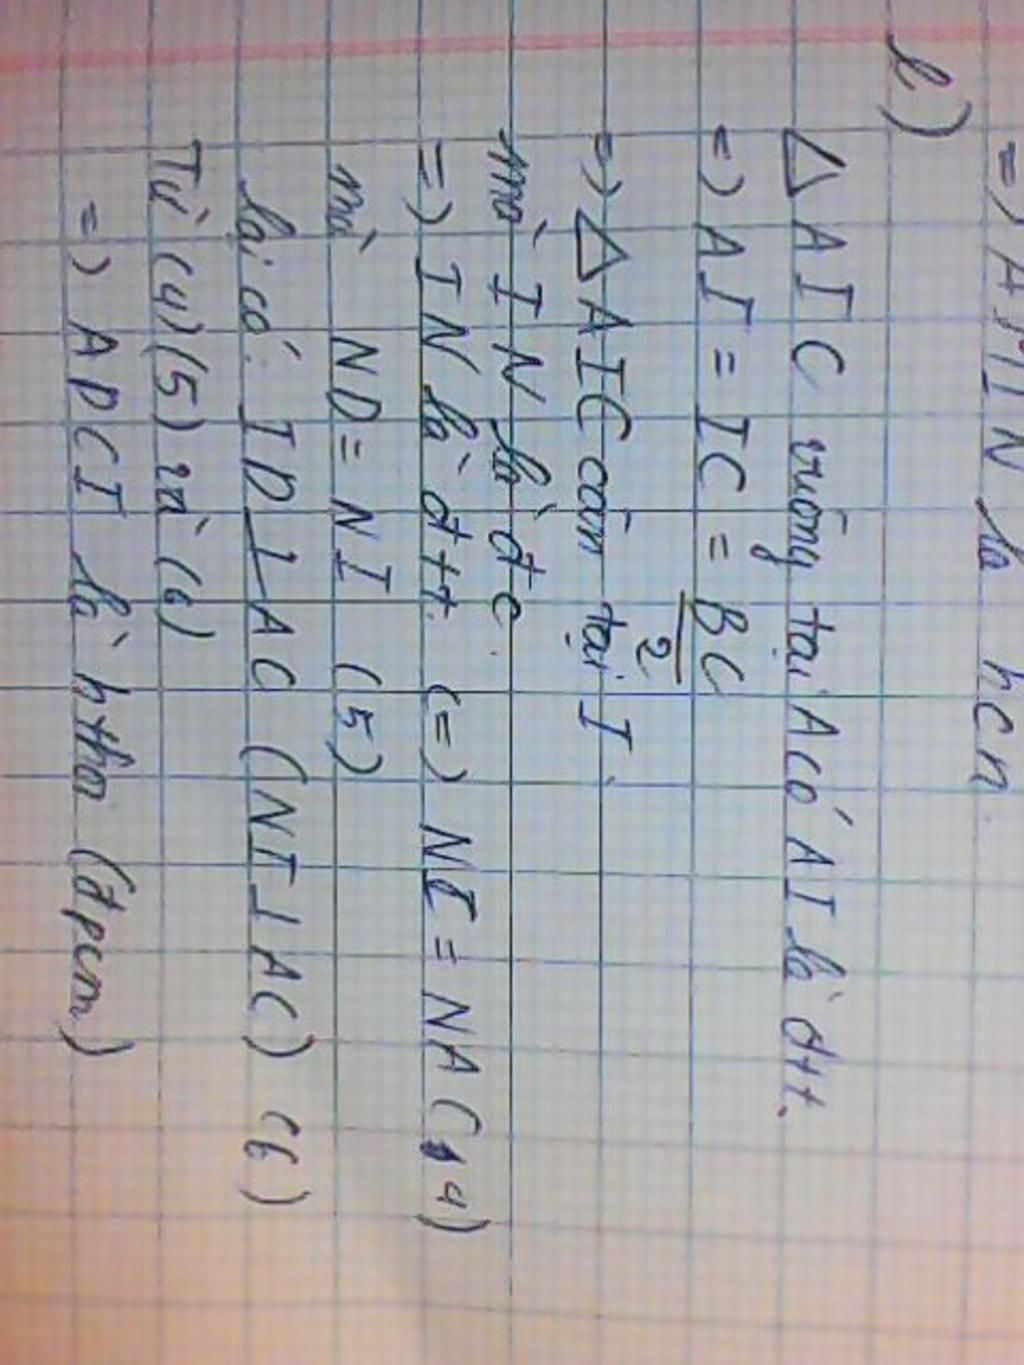 =) AMIN là hcn.
b)
△AIC vuông tại A có AI là đtt.
=) AI = IC = BC/2
=) △AIC cân tại I
mà IN là đc.
=) IN là đtt. (=) NC = NA (4)
mà ND = NI (5)
lại có: ID ⊥ AC (NI ⊥ AC) (6)
Từ (4) (5) và (6)
=) ADCI là hthoi (đpcm)